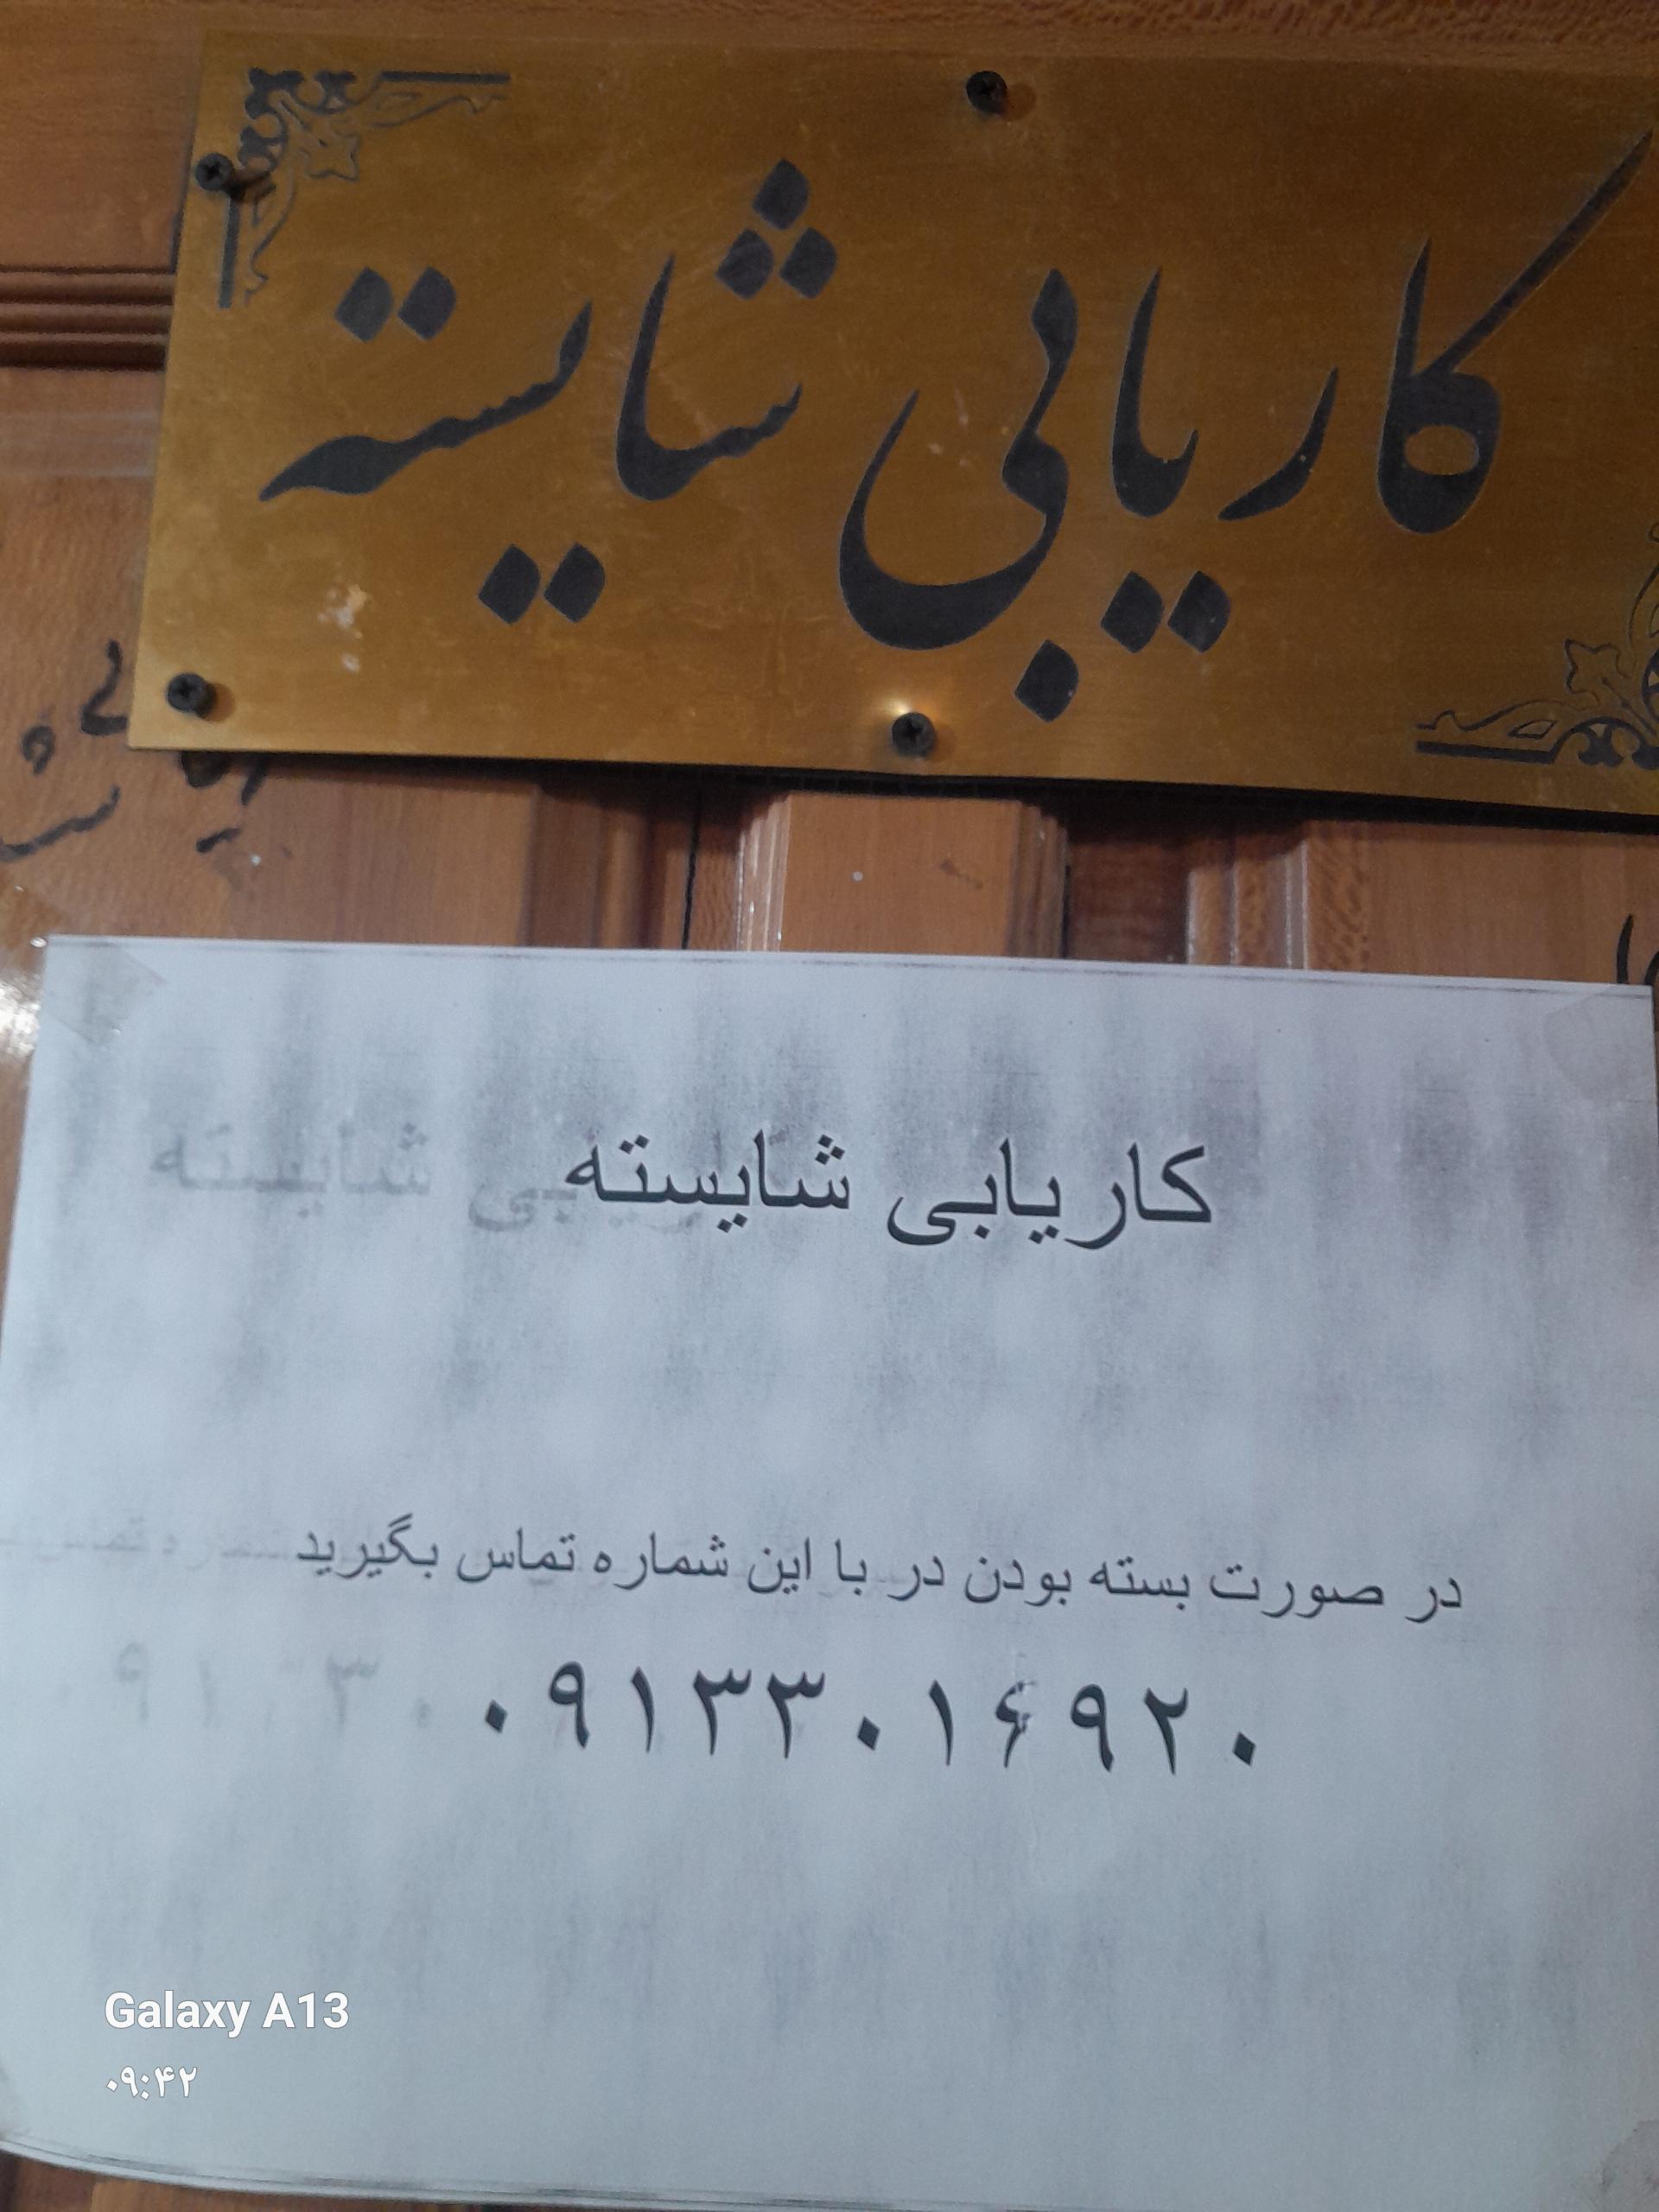 کاریابی شایسته
کاریابی شایسته
در صورت بسته بودن در با این شماره تماس بگیرید
۰۹۱۳۳۰۱۶۹۲۰
Galaxy A13
۰۹:۴۲